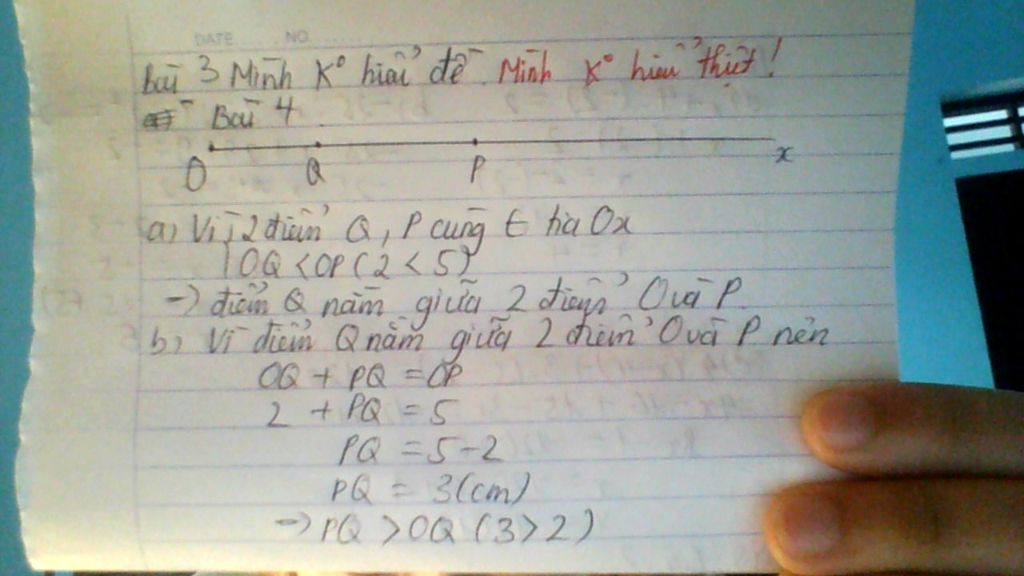 DATE NO.
Bài 3 Mình K° hiểu đề. Mình K° hiểu thiệt!
Bài 4
O Q P x
a) Vì 2 điểm Q, P cùng ∈ tia Ox
OQ < OP (2 < 5)
→ điểm Q nằm giữa 2 điểm O và P.
b) Vì điểm Q nằm giữa 2 điểm O và P nên
OQ + PQ = OP
2 + PQ = 5
PQ = 5 - 2
PQ = 3 (cm)
→ PQ > OQ (3 > 2)